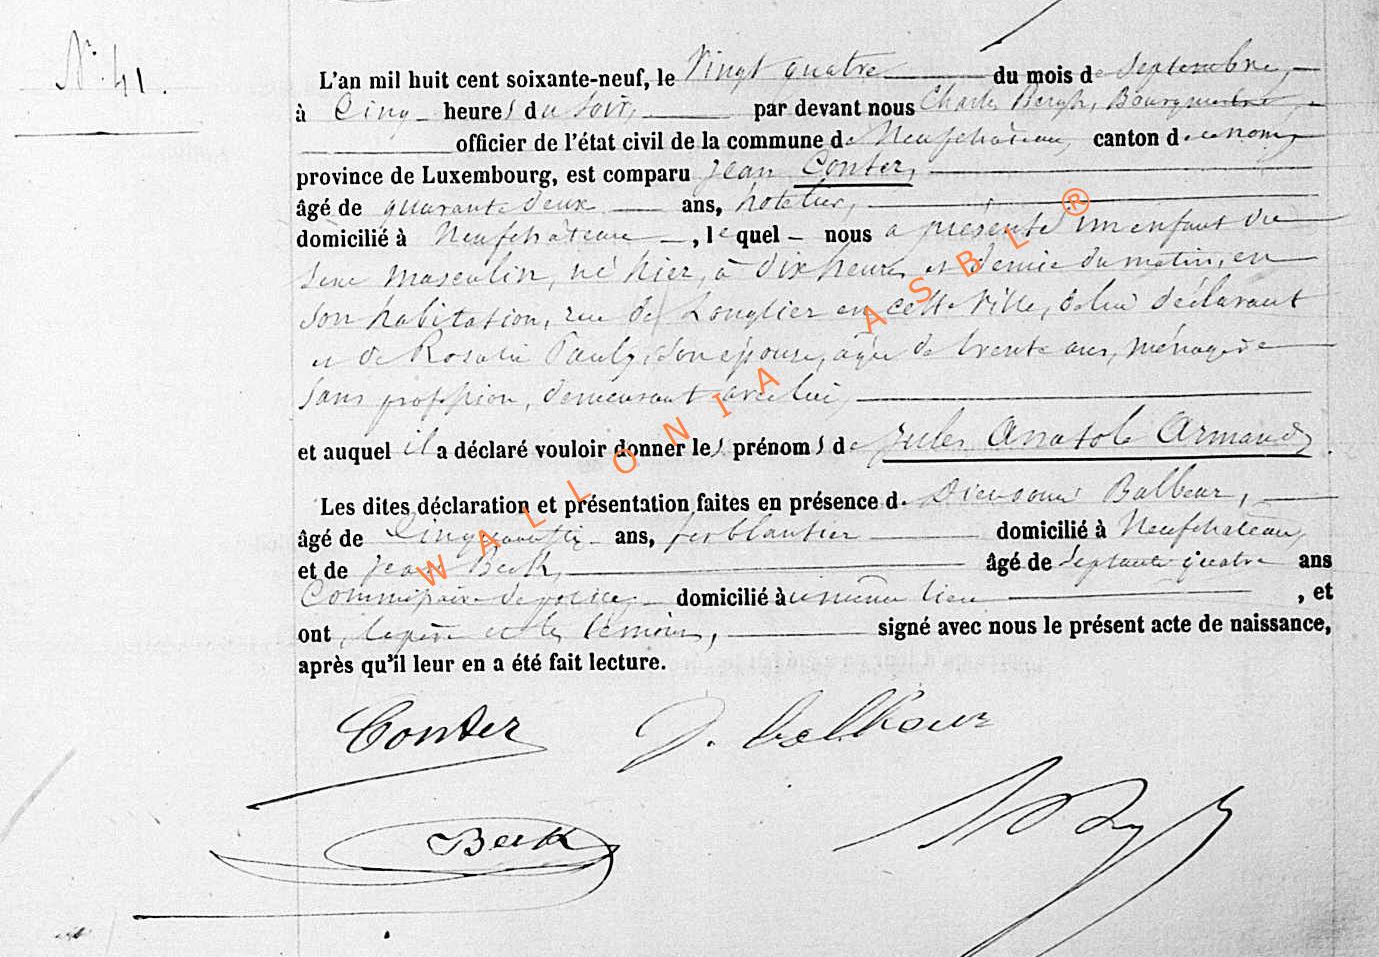 N° 41.
L'an mil huit cent soixante-neuf, le Vingt quatre du mois de Septembre,
à Cinq heures du Soir, par devant nous Charles Bergh, Bourgmestre,
officier de l'état civil de la commune de Neufchâteau, canton de ce nom,
province de Luxembourg, est comparu Jean Conter,
âgé de quarante deux ans, hôtelier,
domicilié à Neufchâteau, le quel nous a présenté un enfant du
sexe masculin, né hier, à dix heures et demie du matin, en
son habitation, rue de Longlier en cette Ville, de lui déclarant
et de Rosalie Pauly, son épouse, agée de trente ans, ménagère
sans profession, demeurant avec lui,
et auquel il a déclaré vouloir donner les prénoms de Jules Anatole Armand,
Les dites déclaration et présentation faites en présence de Dieudonné Balbeur,
âgé de ans, ferblantier domicilié à Neufchâteau,
et de Jean Beck, âgé de septante quatre ans
Commissaire de police, domicilié à u même lieu , et
ont, le père et les témoins, signé avec nous le présent acte de naissance,
après qu'il leur en a été fait lecture.
Conter D. balbeur
Beck
WALLONIA ASBL ®